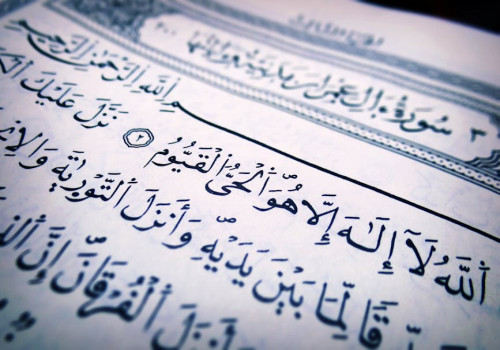 ٣ سُورَةُ آلِ عِمْرَانَ مَدَنِيَّةٌ وَآيَاتُهَا ٢٠٠
بِسْمِ ٱللَّهِ ٱلرَّحْمَٰنِ ٱلرَّحِيمِ
ٱللَّهُ لَآ إِلَٰهَ إِلَّا هُوَ ٱلْحَىُّ ٱلْقَيُّومُ ٢ نَزَّلَ عَلَيْكَ
قًا لِّمَا بَيْنَ يَدَيْهِ وَأَنزَلَ ٱلتَّوْرَىٰةَ وَٱلْإِن
وَأَنزَلَ ٱلْفُرْقَانَ إِنَّ ٱلَّذ